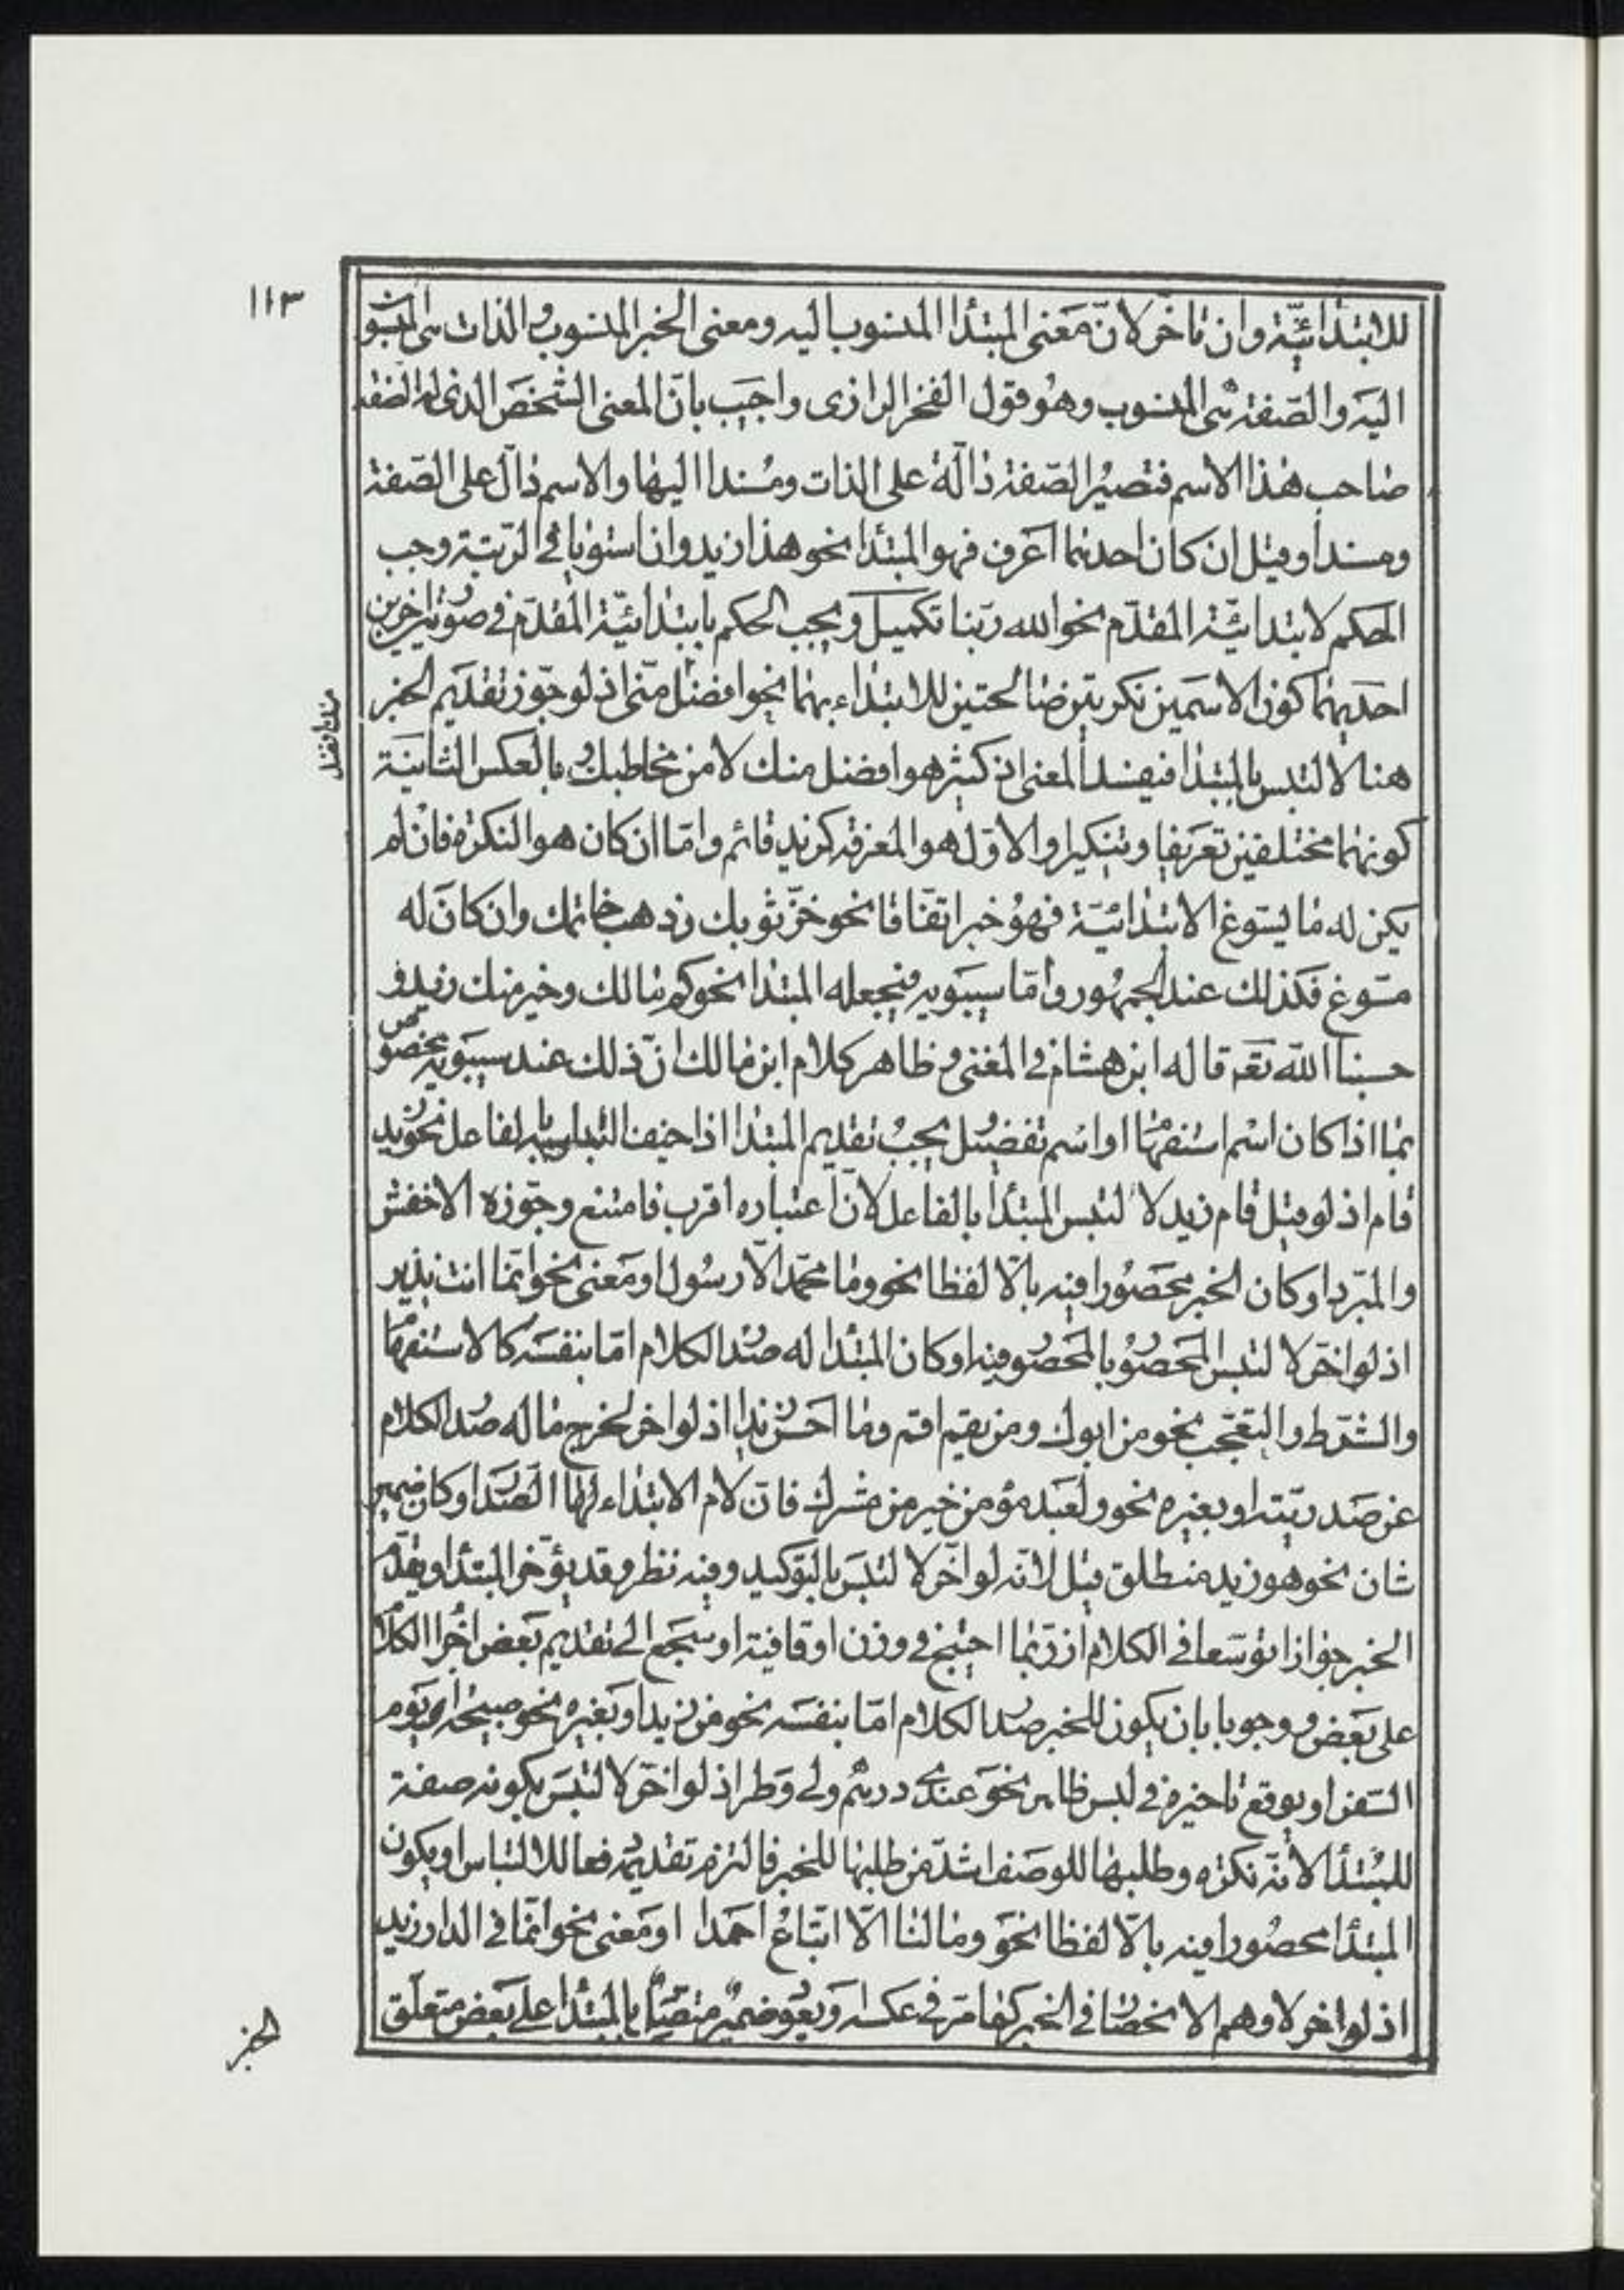 ١١٣
للابتدائيّة وان تاخّر لانّ معنى المبتدأ المنسوب اليه ومعنى الخبر المنسوب والذات هى المنسو
اليه والصّفة هى المنسوب وهو قول الفخر الرازى واجيب بانّ المعنى الشّخص الذى له الصّفة
صاحب هذا الاسم فتصير الصّفة دالّة على الذات ومسندا اليها والاسم دالّ على الصّفة
ومسندا وقيل ان كان احدهما اعرف فهو المبتدأ نحو هذا زيد وان استويا فى الرّتبة وجب
الحكم لابتدائيّة المقدّم نحو الله ربّنا تكميل ويجب الحكم بابتدائيّة المقدّم فى صورتين اخريين
احديهما كون الاسمين نكرتين صالحتين للابتداء بهما نحو افضل منّى اذ لو جوّز تقديم الخبر
هنا لالتبس بالمبتدا فيفسد المعنى اذ كثير هو افضل منك لا من مخاطبك وبالعكس الثانية
كونهما مختلفين تعريفا وتنكيرا والاوّل هو المعرفة كزيد قائم وامّا ان كان هو النكرة فان لم
يكن له ما يسّوغ الابتدائيّة فهو خبر اتفّاقا نحو خزّ ثوبك وذهب خاتمك وان كان له
مسّوغ فكذلك عند الجمهور وامّا سيبويه فيجعله المبتدا نحو كم مالك وخير منك زيد و
حسبنا الله تعه قاله ابن هشام فى المغنى وظاهر كلام ابن مالك انّ ذلك عند سيبويه مخصوص
بما اذا كان اسم استفهام او اسم تفضيل يجب تقديم المبتدا اذا خيف التباسه بالفاعل نحو زيد
قام اذ لو قيل قام زيد لالتبس المبتدأ بالفاعل لانّ اعتباره اقرب فامتنع وجوّزه الاخفش
والمبّرد او كان الخبر محصورا فيه بالّا لفظا نحو وما محمّد الّا رسول او معنى نحو انّما انت نذير
اذ لو اخّر لالتبس المحصور بالمحصور فيه او كان المبتدا له صدر الكلام امّا بنفسه كالاستفهام
والشّرط والتعّجب نحو من ابوك ومن يقم اقم وما احسن زيدا اذ لو اخر لخرج ما له صدر الكلام
عن صدريّته او بغيره نحو ولعبد مؤمن خير من مشرك فانّ لام الابتداء لها الصّدر او كان ضمير
شان نحو هو زيد منطلق قيل لانّه لو اخّر لالتبس بالتوّكيد وفيه نظر وقد يؤخّر المبتدا ويقدّم
الخبر جوازا توسّعا فى الكلام اذ ربّما احتيج فى وزن او قافية او سجع الى تقديم بعض اجزا الكلام
على بعض ووجوبا بان يكون للخبر صدر الكلام امّا بنفسه نحو من زيد او بغيره نحو صبيحة اى يوم
السّفر او يوقع تاخيره فى لبس ظاهر نحو عندى درهم ولى وطر اذ لو اخّر لالتبس بكونه صفة
للمبتدأ لأنّه نكره وطلبها للوصف اشدّ من طلبها للخبر فالتزم تقديمه دفعا للالتباس او يكون
المبتدأ محصورا فيه بالّا لفظا نحو وما لنا الّا اتّباع احمدا او معنى نحو انّما فى الدار زيد
اذ لو اخر لاوهم الانحصار فى الخبر كما مر فى عكسه ويعود ضمير متصّل بالمبتدا على بعض متعلّق
الخبر